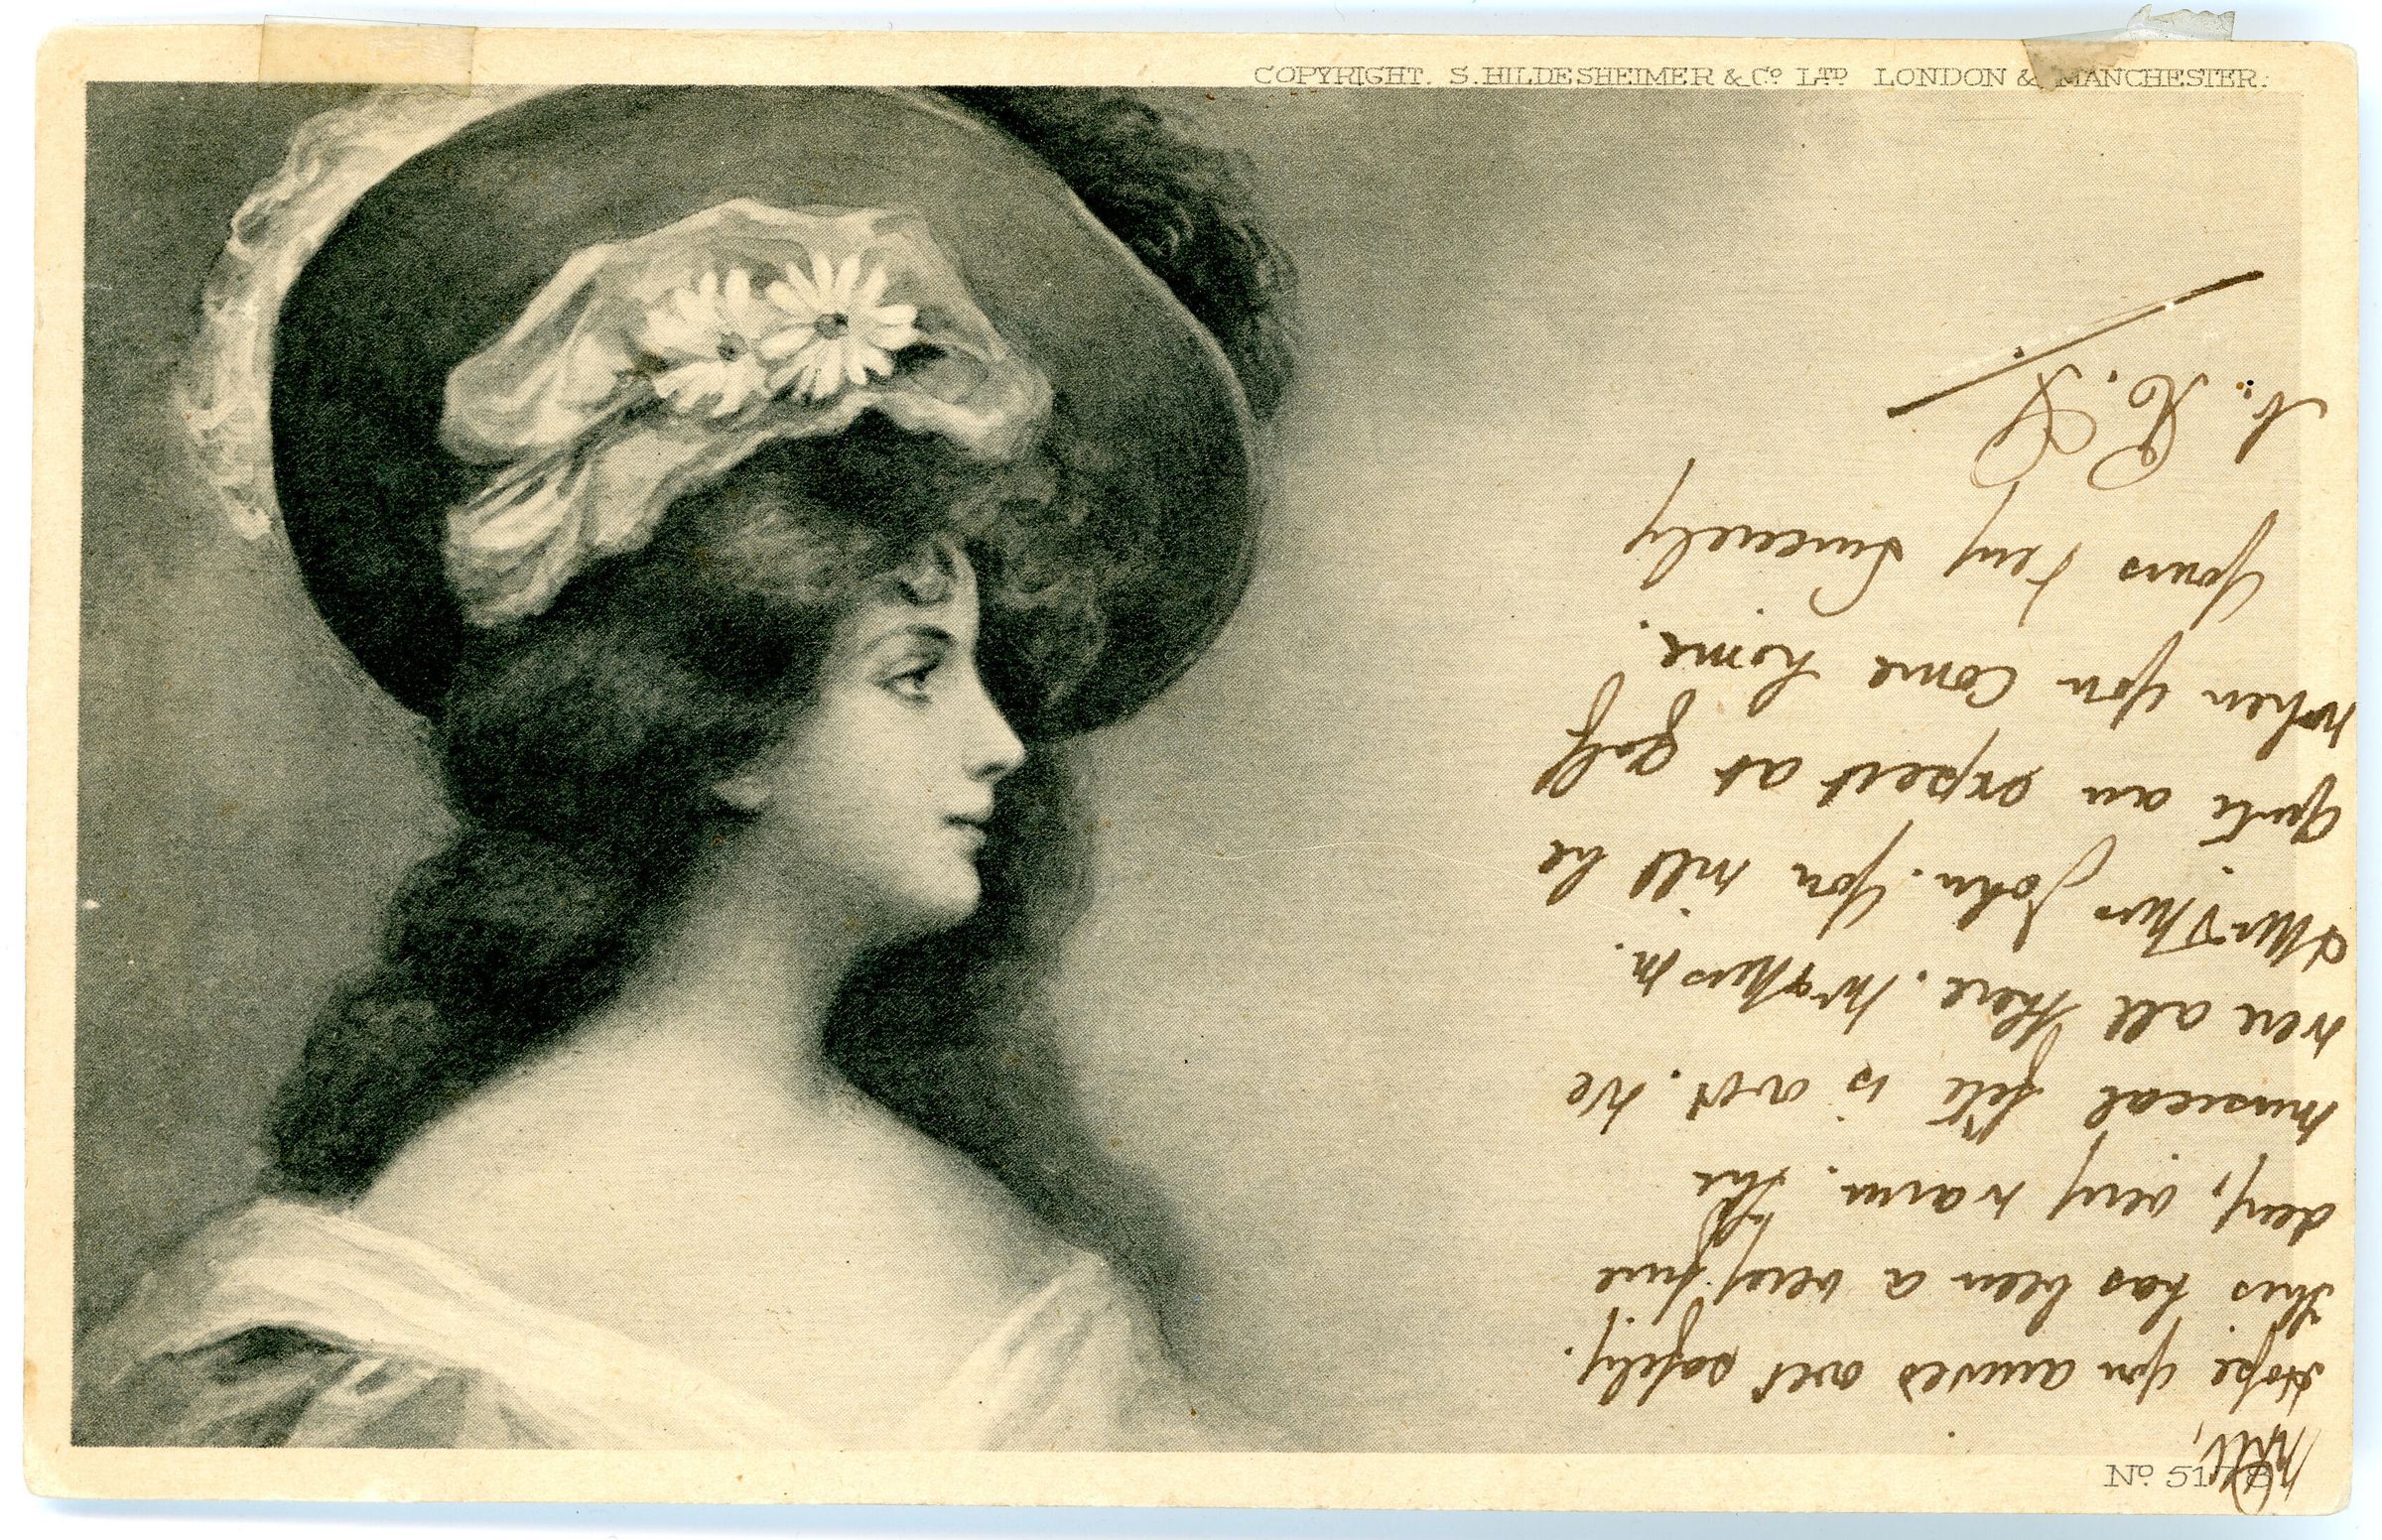 COPYRIGHT. S. HILDESHEIMER & Co. LTD LONDON & MANCHESTER.
No. 5178
Hope you arrived over safely.
This has been a very fine
day, very warm. The
musical fête is over. We
were all there. Mr & Mrs M.
& Mr & Mrs John. You will be
quite an expert at golf
when you come home.
Yours Very Sincerely